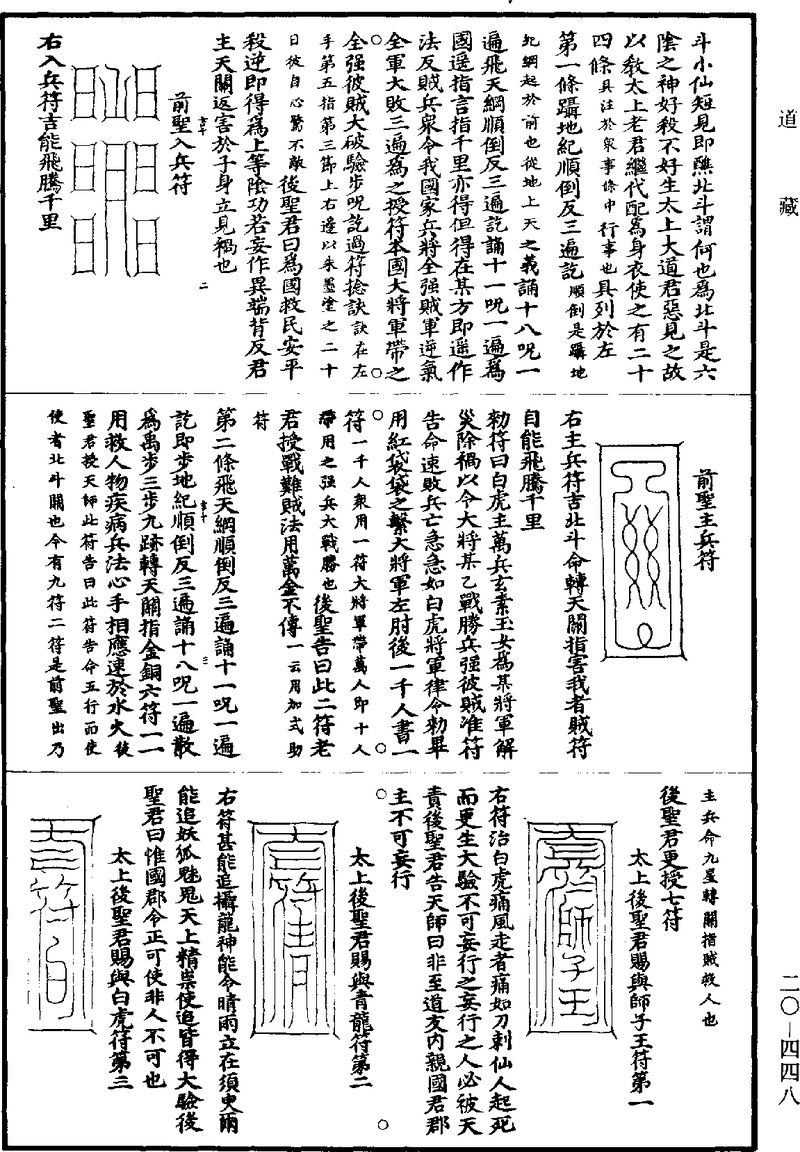 道藏
二〇—四四八
斗小仙短見即醮北斗謂何也為北斗是六
陰之神好殺不好生太上大道君惡見之故
以敎太上老君繼代配為身衣使之有二十
四條具注於衆事條中行事也具列於左
第一條躡地紀順倒反三遍訖順倒是躡地
紀綱起於前也從地上天之義誦十八呪一
遍飛天綱順倒反三遍訖誦十一呪一遍為
國遥指言指千里亦得但得在某方即遥作
法反賊兵衆令我國家兵將全强賊軍逆氣
全軍大敗三遍為之授符本國大將軍帶之
全强彼賊大破驗步呪訖過符捻訣訣在左
手第五指第三節上右邊以朱墨塗之二十
日彼自心驚不敵後聖君曰為國救民安平
殺逆即得為上等陰功若妄作異端背反君
主天關返害於子身立見禍也
前聖入兵符
右入兵符吉能飛騰千里
前聖主兵符
右主兵符吉北斗命轉天關指害我者賊符
自能飛騰千里
勑符曰白虎主萬兵玄素玉女為某將軍解
災除禍以令大將某乙戰勝兵强彼賊准符
告命速敗兵亡急急如白虎將軍律令勑畢
用紅袋袋之繫大將軍左肘後一千人書一
符一千人衆用一符大將軍帶萬人即十人
帶用之强兵大戰勝也後聖告曰此二符老
君授戰難賊法用萬金不傳一云用加式助
符
第二條飛天綱順倒反三遍誦十一呪一遍
訖即步地紀順倒反三遍誦十八呪一遍散
為禹步三步九跡轉天關指金銅六符一一
用救人物疾病兵法心手相應速於水火後
聖君授天師此符告曰此符告命五行而使
使者北斗關也今有九符二符是前聖出乃
主兵命九星轉關指賊殺人也
後聖君更授七符
太上後聖君賜與師子王符第一
右符治白虎痛風走者痛如刀刺仙人起死
而更生大驗不可妄行之妄行之人必被天
責後聖君告天師曰非至道友內親國君郡
主不可妄行
太上後聖君賜與青龍符第二
右符甚能追攝龍神能令晴雨立在須臾爾
能追妖狐魅鬼天上精祟使追皆得大驗後
聖君曰惟國郡令正可使非人不可也
太上後聖君賜與白虎符第三